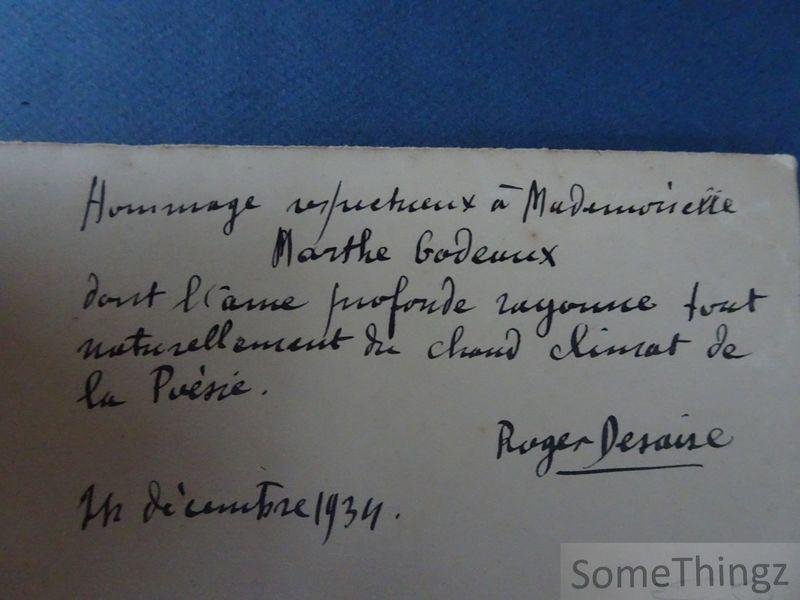 Hommage respectueux à Mademoiselle
Marthe Godeaux
dont l'âme profonde rayonne tout
naturellement du chaud climat de
la Poésie.
Roger Desaise
décembre 1934.
SomeThingz